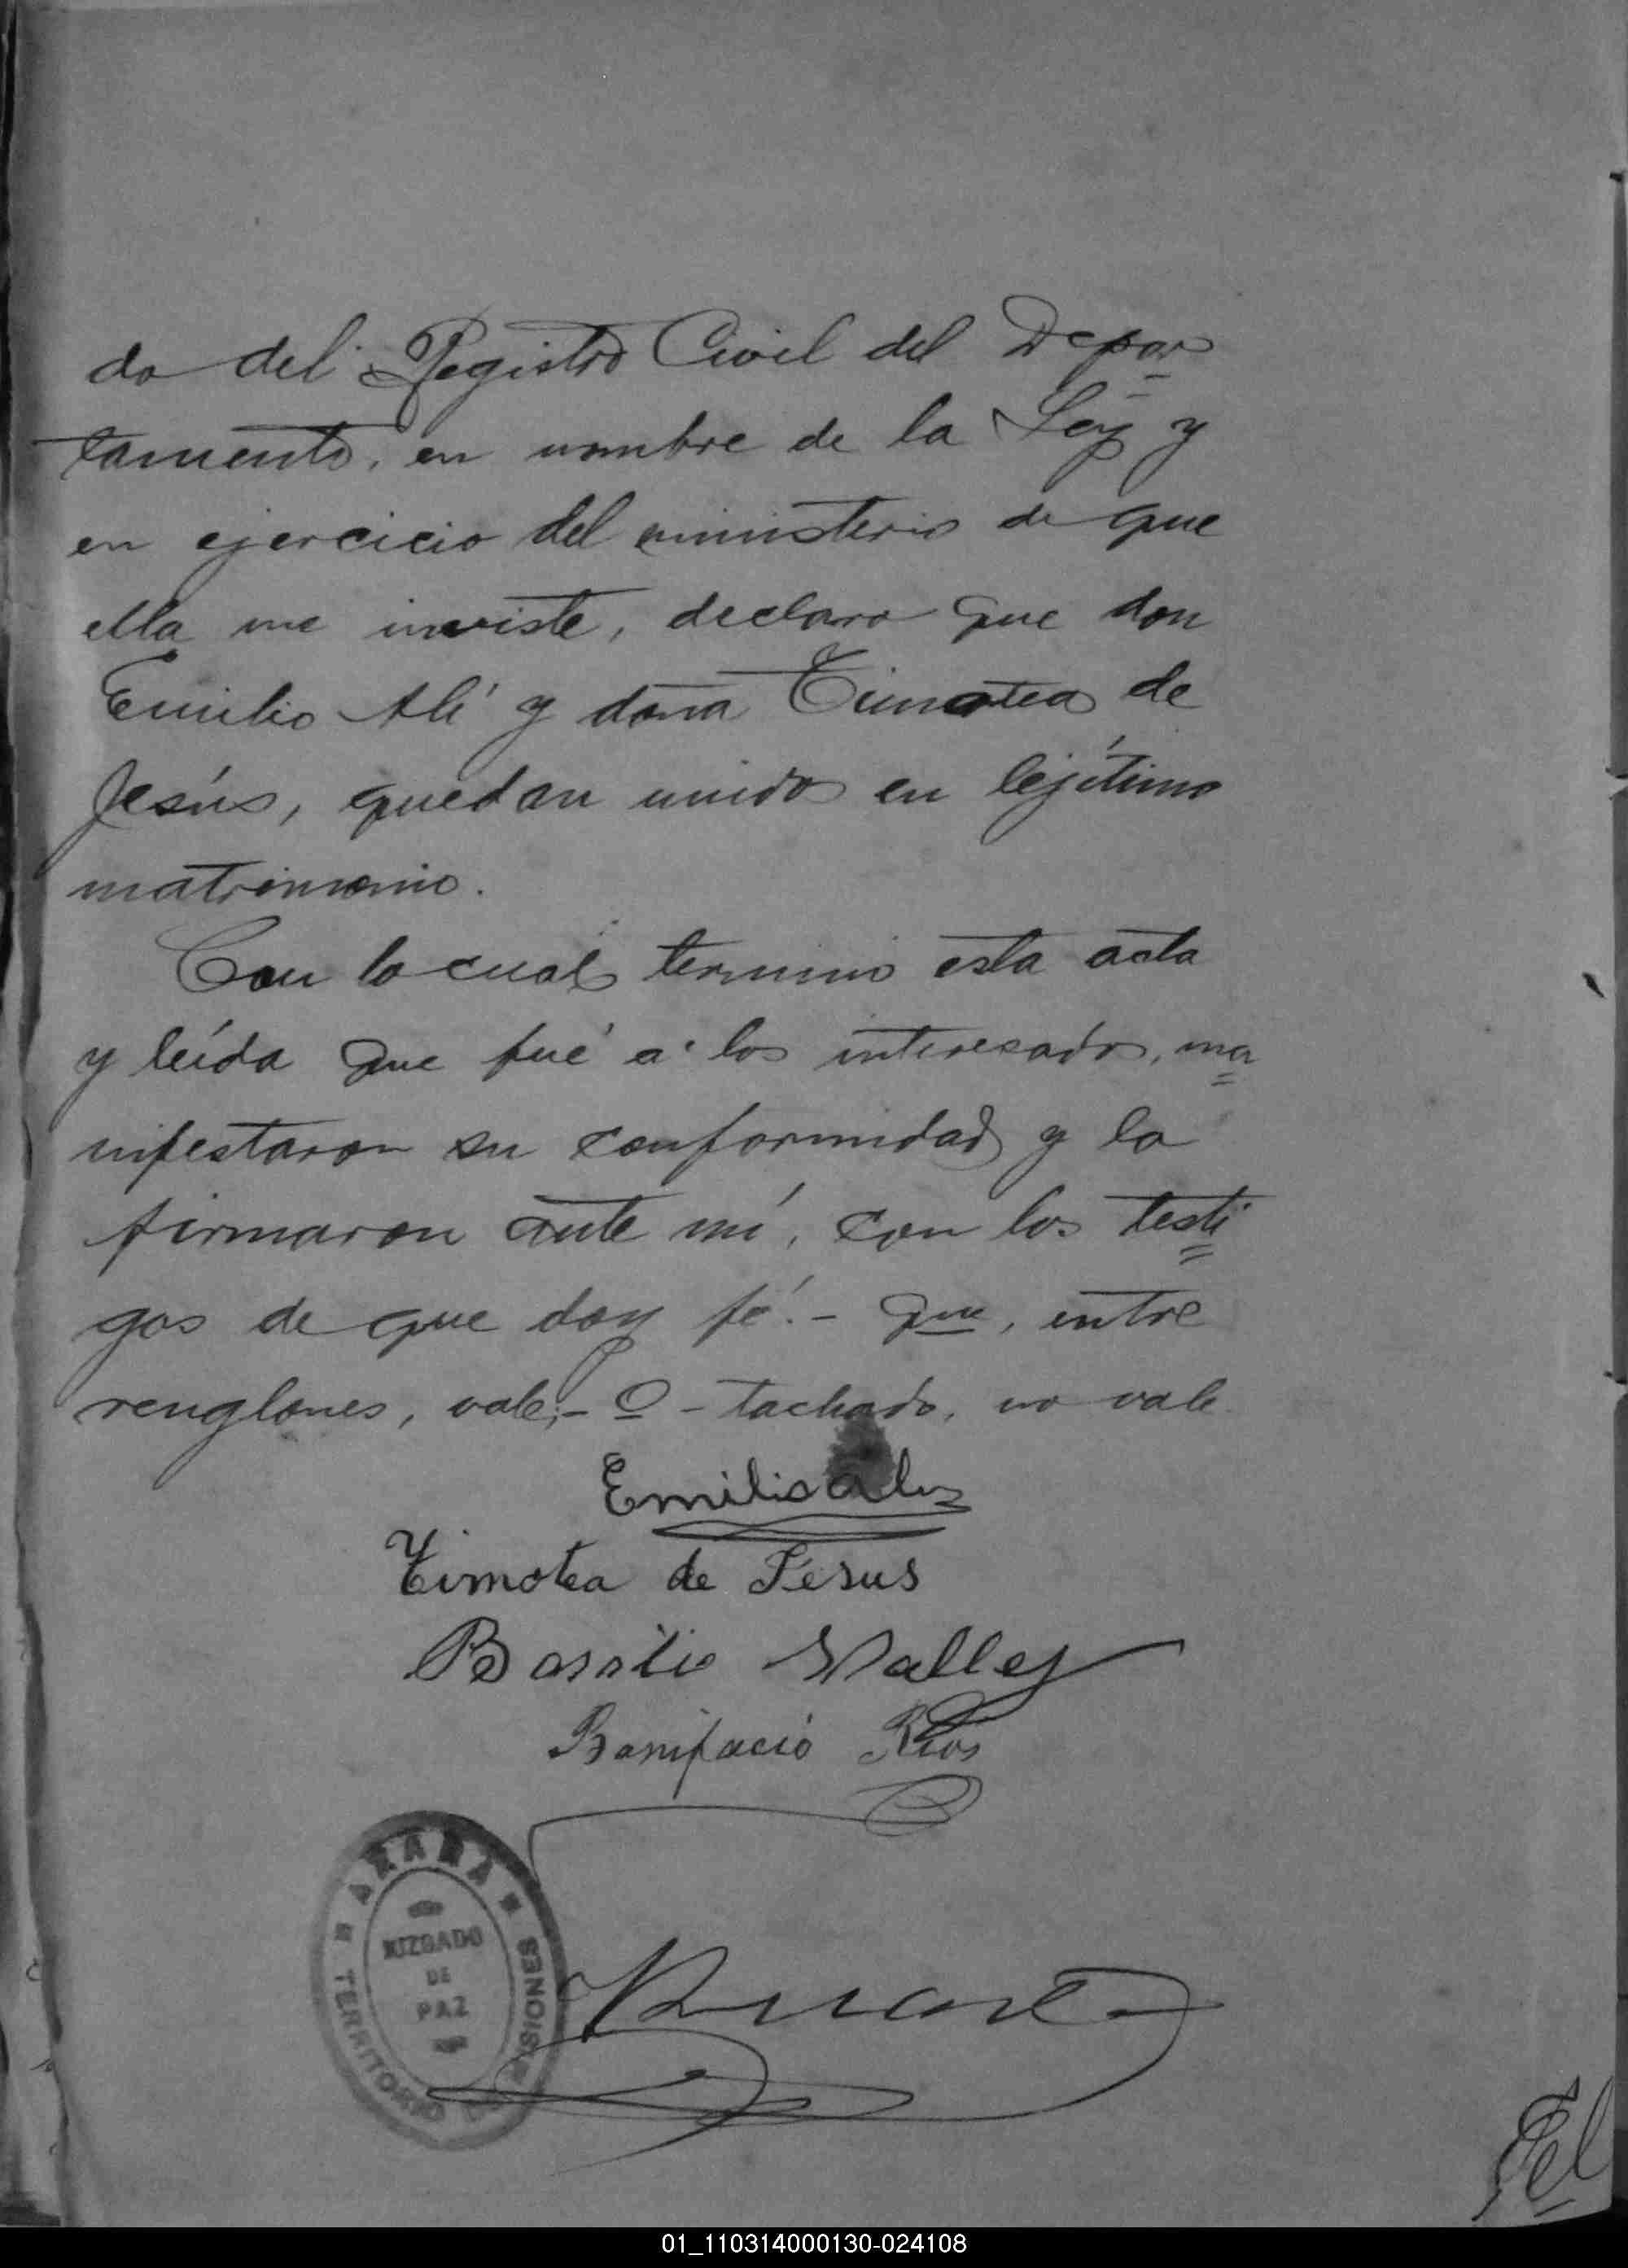 do del Registro Civil del Depar
tamento, en nombre de la Ley y
en ejercicio del ministerio de que
ella me inviste, declaro que don
Emilio Alí y doña Timotea de
Jesús, quedan unidos en lejítimo
matrimonio.
Con lo cual termino esta acta
y leída que fué a los interesados, ma
nifestaron su conformidad y la
firmaron ante mí, con los testi
gos de que doy fé.- que, entre
renglones, vale;- o - tachado, no vale
Emilio Ali
Timotea de Jesus
Basilio Valley
Bonifacio Rios
JUZGADO
DE
PAZ
TERRITORIO DE MISIONES
01_110314000130-024108